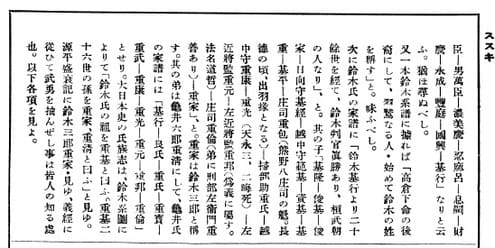 スズキ
臣―男萬臣―濃美麿―忍麿呂―息嗣―財
麿―永成―豐庭―國興―基行」なりと云
ふ。猶ほ尋ぬべし。
又一本鈴木系譜に據れば「高倉下命の後
裔にして、羽鷲なる人・始めて鈴木の姓
を稱す」と。味ふべし。
次に鈴木氏の家譜に「鈴木基行より二十
餘世を經て、鈴木判官眞勝あり、桓武朝
の人なり」と。其の子「基隆―俊基―俊
家―日向守基經―越中守範基―資基―
重―基平―庄司重包(熊野八庄司の魁。長
德の頃、出羽掾となる)―掃部助重氏―越
中守重康―重光(天永三、二、晦死)―左
近將監重元―左近將監重邦(爲義に屬す。
法名道哲)―庄司重倫(弟に刑部左衞門重
善あり)―重家」と。重家は鈴木三郎と稱
す。其の弟は龜井六郎重淸にして、龜井氏
の家譜には「基行―良氏―重氏―重實―
重武―重康―重光―重元―重邦―重倫」
とせり。大日本史の氏族志は、鈴木系圖に
よりて「鈴木氏の祖を重基と曰ふ。重基二
十六世の孫を重家、重淸と曰ふ」と見ゆ。
源平盛衰記に鈴木三郎重家・見ゆ、義經に
從ひて武勇を抽んぜし事は皆人の知る處
也。以下各項を見よ。